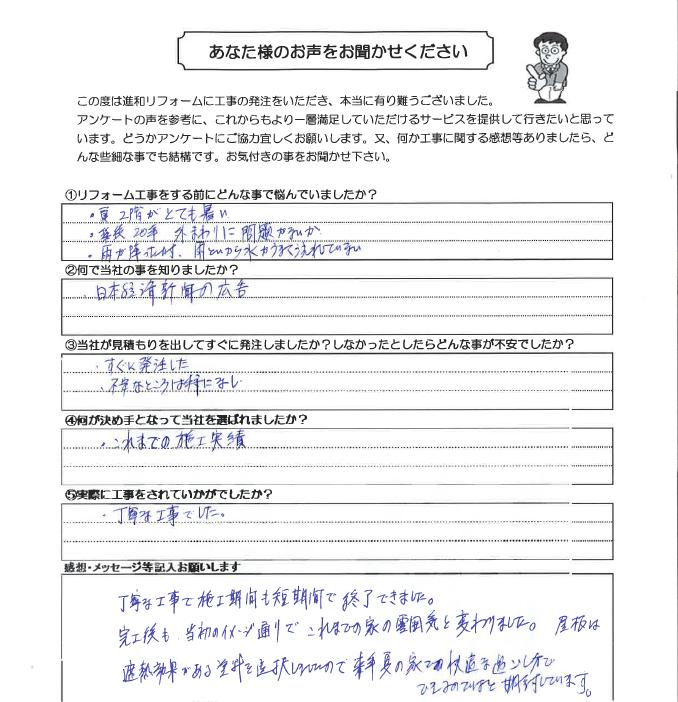 あなた様のお声をお聞かせください
この度は進和リフォームに工事の発注をいただき、本当に有り難うございました。
アンケートの声を参考に、これからもより一層満足していただけるサービスを提供して行きたいと思って
います。どうかアンケートにご協力宜しくお願いします。又、何か工事に関する感想等ありましたら、ど
んな些細な事でも結構です。お気付きの事をお聞かせ下さい。
①リフォーム工事をする前にどんな事で悩んでいましたか？
・夏 2階がとても暑い
・築後20年 外まわりに問題がないか
・雨が降れば、雨といから水がうまく流れていない
②何で当社の事を知りましたか？
・日本経済新聞の広告
③当社が見積もりを出してすぐに発注しましたか？しなかったとしたらどんな事が不安でしたか？
・すぐに発注した
・不安なところは特になし
④何が決め手となって当社を選ばれましたか？
・これまでの施工実績
⑤実際に工事をされていかがでしたか？
・丁寧な工事でした。
感想・メッセージ等記入お願いします
丁寧な工事で施工期間も短期間で終了できました。
完工後も、当初のイメージ通りでこれまでの家の雰囲気と変わりました。 屋根は
遮熱効果がある塗料を選択しているので来年夏の家での快適な過ごし方が
できるのではと期待しています。